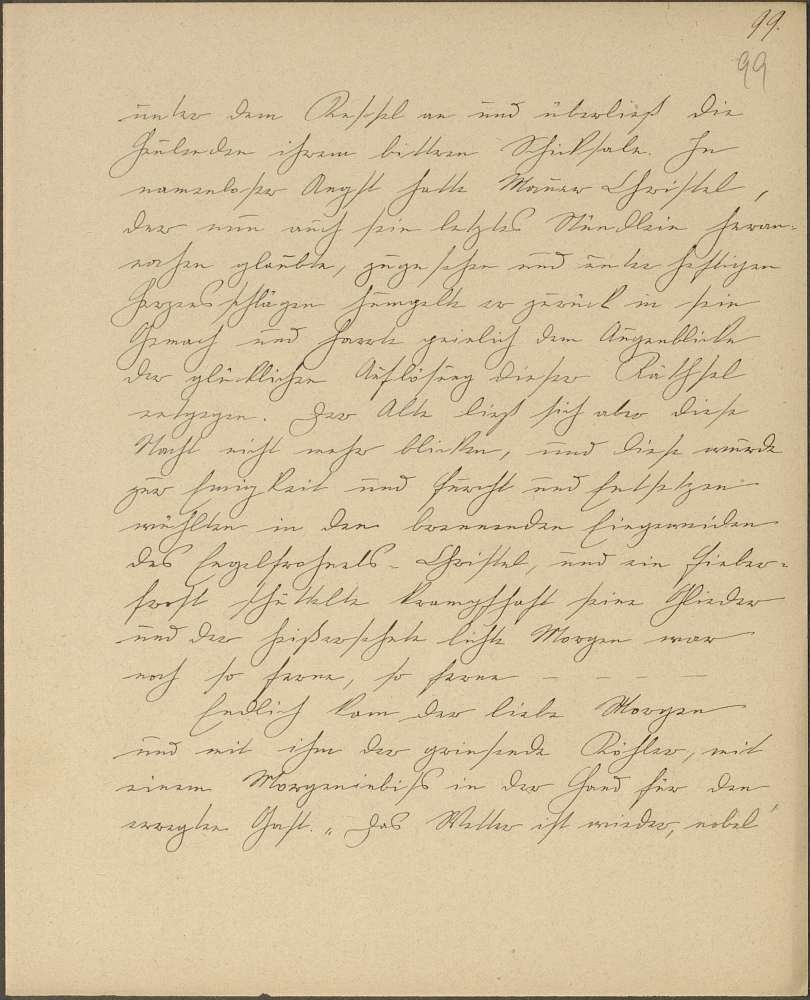 99.
99
unter dem Kessel an und überließ die
Heulenden ihrem bittren Schicksale. In
namenloser Angst hatte Mauer Christel,
der nun auch sein letztes Stündlein heran-
nahen glaubte, zugesehen und unter heftigen
Herzensschlägen humpelte er zurück in sein
Gemach und harrte peinlich dem Augenblicke
der glücklichen Auflösung dieser Räthsel
entgegen. Der Alte ließ sich aber diese
Nacht nicht mehr blicken, und diese wurde
zur Ewigkeit und Furcht und Entsetzen
wühlten in den brennenden Eingeweiden
des Engelfrohnels-Christel, und ein Fieber-
frost schüttelte krampfhaft seine Glieder
und der heißersehnte lichte Morgen war
noch so ferne, so ferne – – – –
Endlich kam der liebe Morgen
und mit ihm der grinsende Köhler, mit
einem Morgenimbiss in der Hand für den
erregten Gast. „Das Wetter ist wieder, nobel'